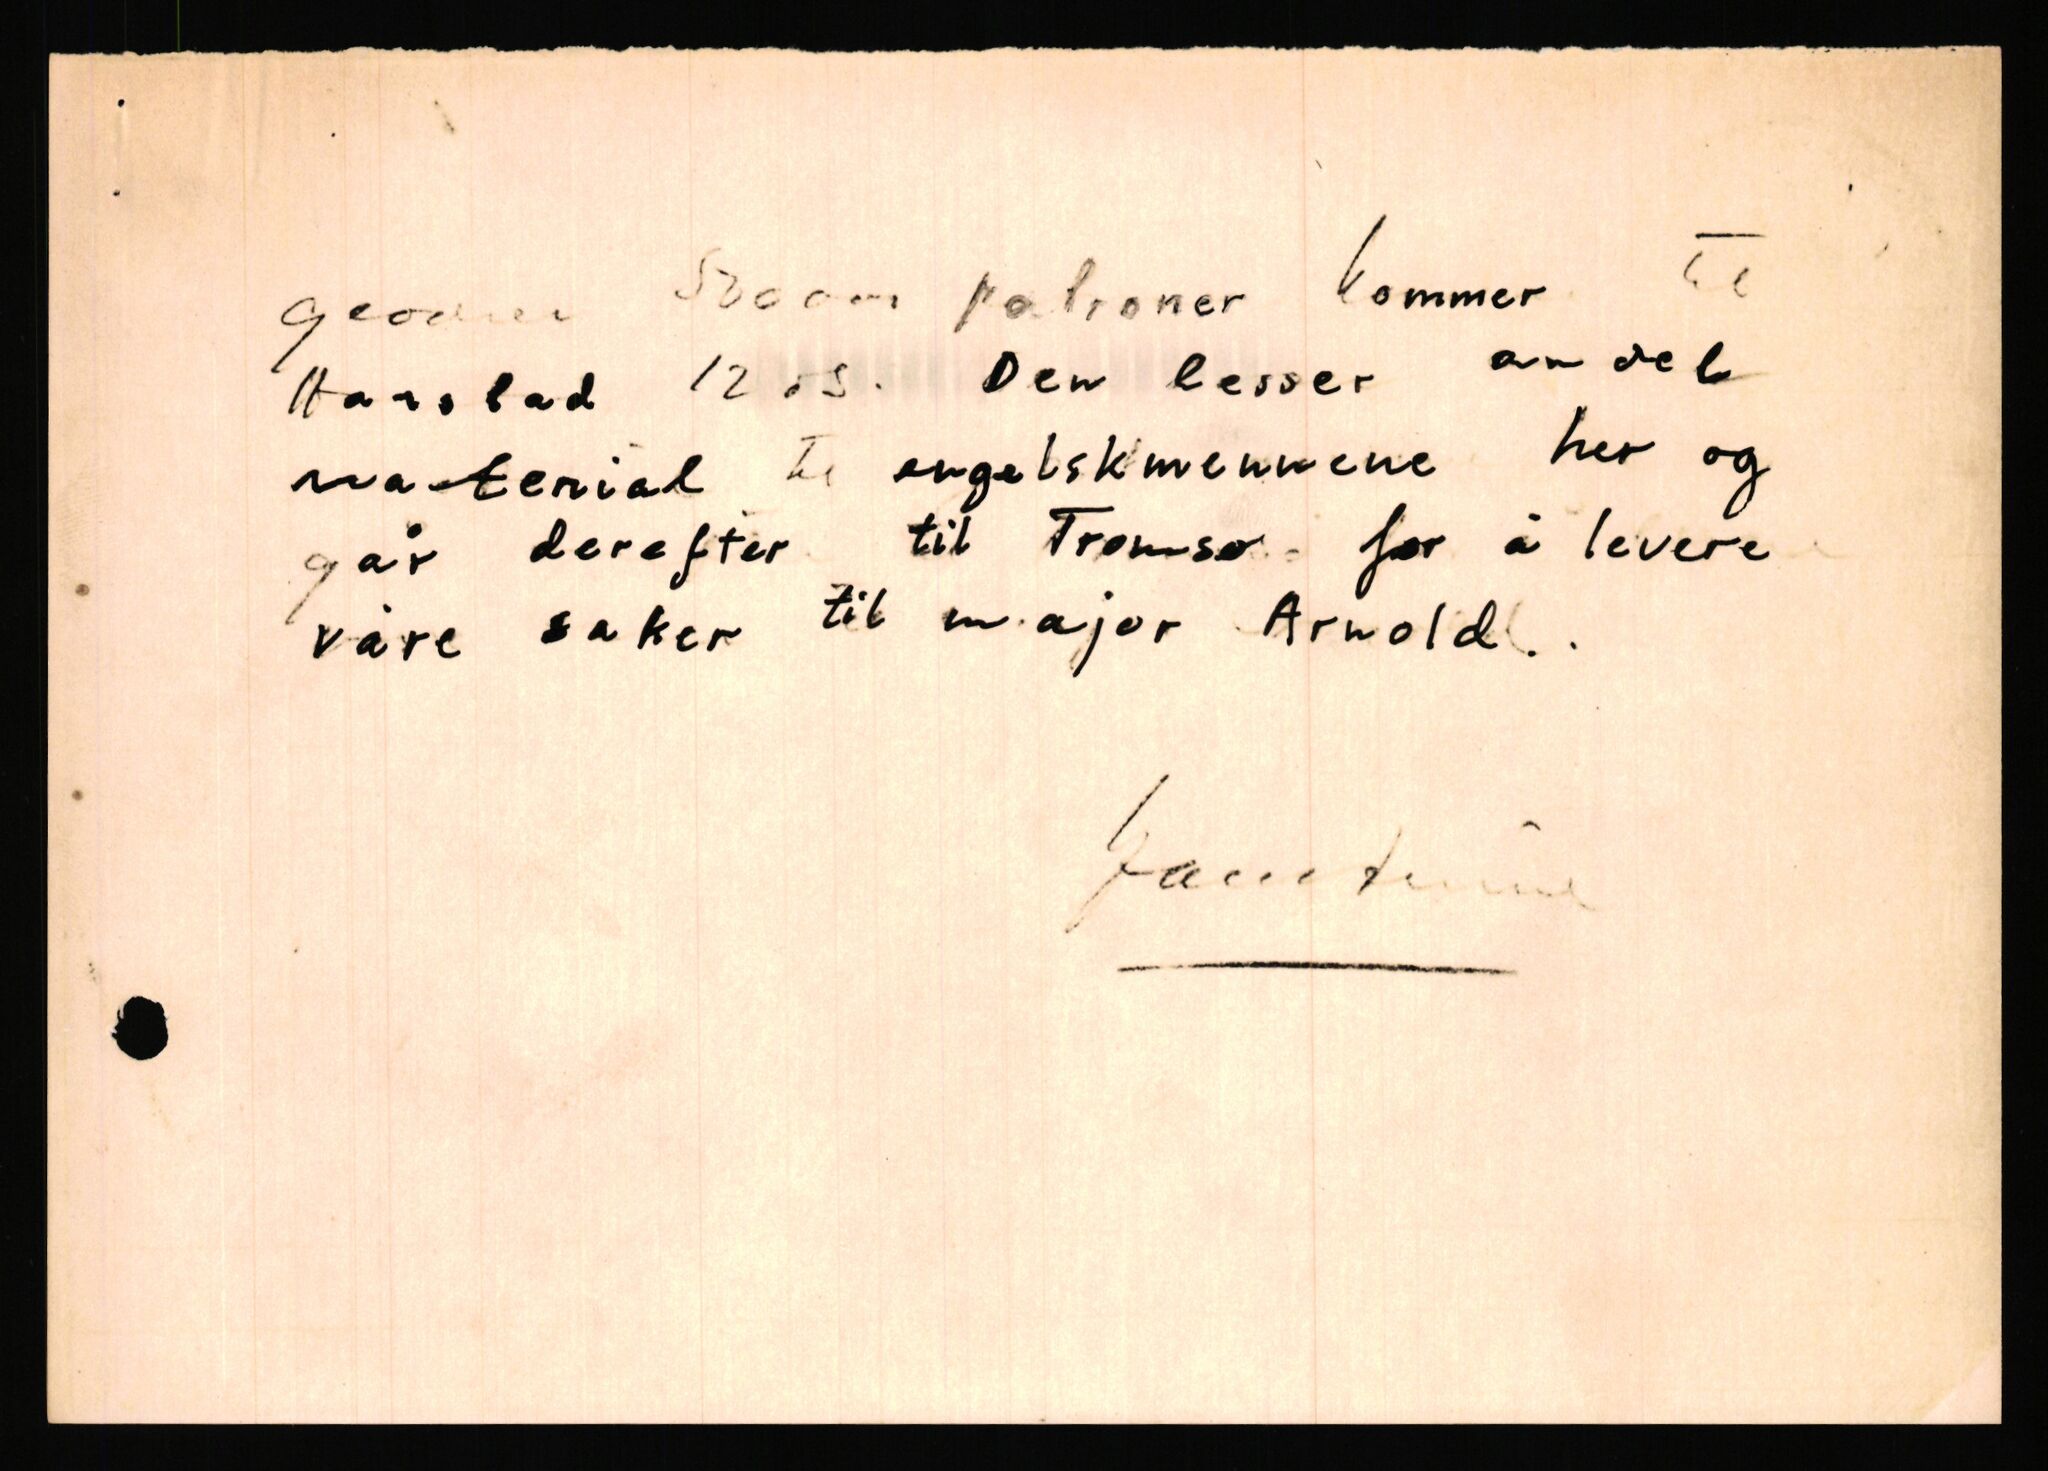 patroner kommer til
Harstad 12 Den lesser andel
material til engelskmennene her og
går derefter til Tromsø for å levere
våre saker til major Arnold.